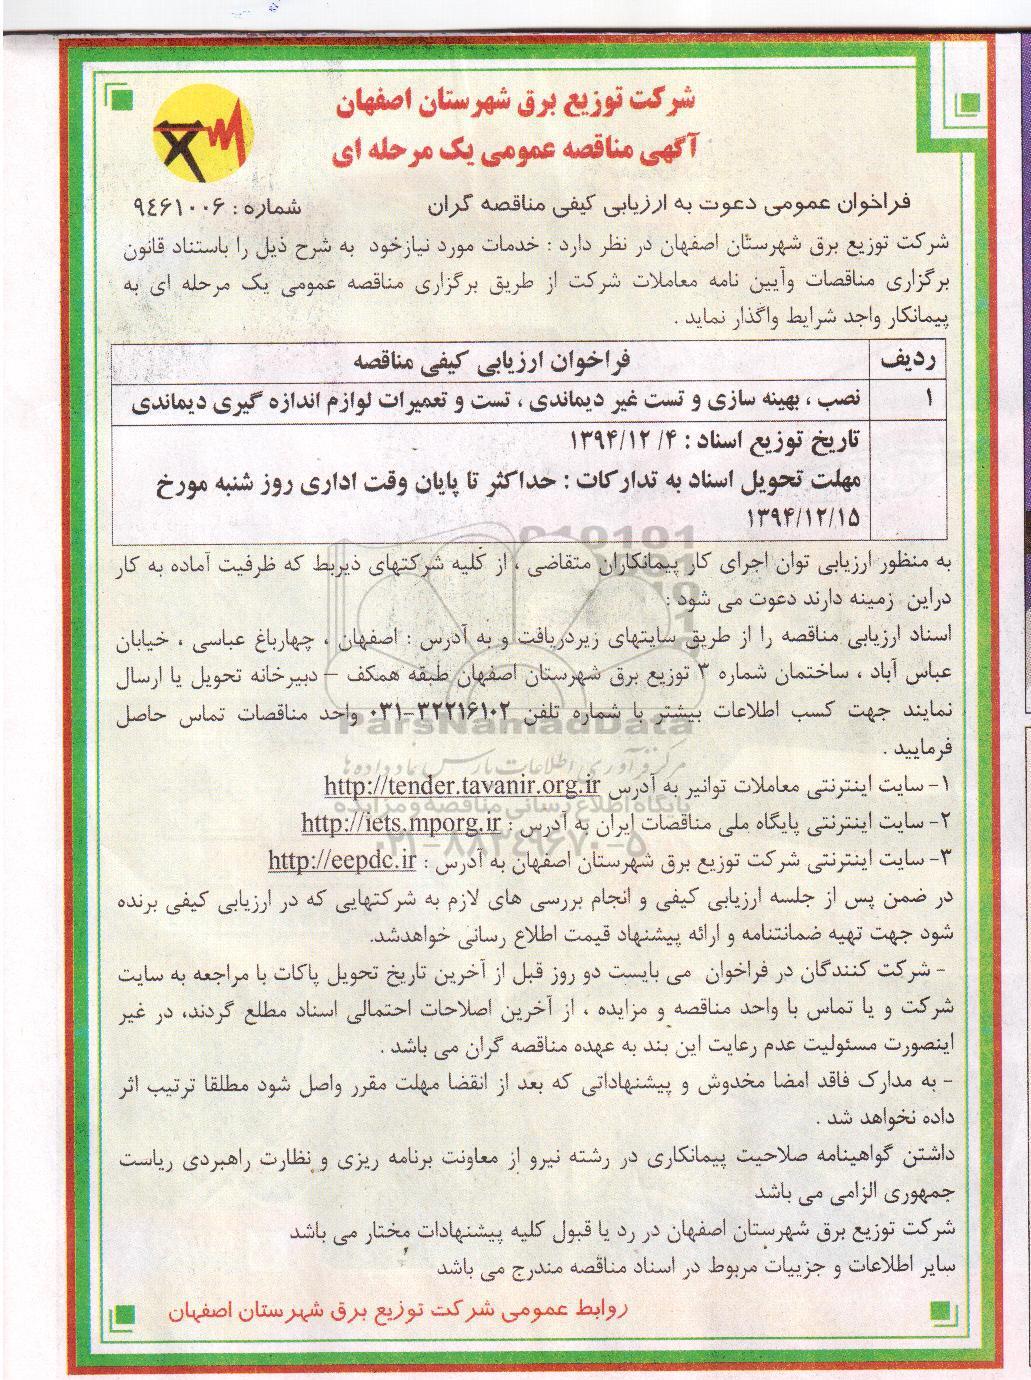 شرکت توزیع برق شهرستان اصفهان
آگهی مناقصه عمومی یک مرحله ای
فراخوان عمومی دعوت به ارزیابی کیفی مناقصه گران
شماره : ۹٤۶۱۰۰۶
شرکت توزیع برق شهرستان اصفهان در نظر دارد : خدمات مورد نیازخود به شرح ذیل را باستناد قانون
برگزاری مناقصات وآیین نامه معاملات شرکت از طریق برگزاری مناقصه عمومی یک مرحله ای به
پیمانکار واجد شرایط واگذار نماید .
ردیف
فراخوان ارزیابی کیفی مناقصه
۱
نصب ، بهینه سازی و تست غیر دیماندی ، تست و تعمیرات لوازم اندازه گیری دیماندی
تاریخ توزیع اسناد : ۴ /۱۳۹۴/۱۲
مهلت تحویل اسناد به تدارکات : حداکثر تا پایان وقت اداری روز شنبه مورخ
۱۳۹۴/۱۲/۱۵
به منظور ارزیابی توان اجرای کار پیمانکاران متقاضی ، از کلیه شرکتهای ذیربط که ظرفیت آماده به کار
دراین زمینه دارند دعوت می شود :
اسناد ارزیابی مناقصه را از طریق سایتهای زیردریافت و به آدرس : اصفهان ، چهارباغ عباسی ، خیابان
عباس آباد ، ساختمان شماره ۳ توزیع برق شهرستان اصفهان طبقه همکف – دبیرخانه تحویل یا ارسال
نمایند جهت کسب اطلاعات بیشتر با شماره تلفن ۳۲۲۱۶۱۰۲-۰۳۱ واحد مناقصات تماس حاصل
فرمایید .
۱- سایت اینترنتی معاملات توانیر به آدرس http://tender.tavanir.org.ir
۲- سایت اینترنتی پایگاه ملی مناقصات ایران به آدرس : http://iets.mporg.ir
۳- سایت اینترنتی شرکت توزیع برق شهرستان اصفهان به آدرس : http://eepdc.ir
در ضمن پس از جلسه ارزیابی کیفی و انجام بررسی های لازم به شرکتهایی که در ارزیابی کیفی برنده
شود جهت تهیه ضمانتنامه و ارائه پیشنهاد قیمت اطلاع رسانی خواهدشد.
- شرکت کنندگان در فراخوان می بایست دو روز قبل از آخرین تاریخ تحویل پاکات با مراجعه به سایت
شرکت و یا تماس با واحد مناقصه و مزایده ، از آخرین اصلاحات احتمالی اسناد مطلع گردند، در غیر
اینصورت مسئولیت عدم رعایت این بند به عهده مناقصه گران می باشد .
- به مدارک فاقد امضا مخدوش و پیشنهاداتی که بعد از انقضا مهلت مقرر واصل شود مطلقا ترتیب اثر
داده نخواهد شد .
داشتن گواهینامه صلاحیت پیمانکاری در رشته نیرو از معاونت برنامه ریزی و نظارت راهبردی ریاست
جمهوری الزامی می باشد
شرکت توزیع برق شهرستان اصفهان در رد یا قبول کلیه پیشنهادات مختار می باشد
سایر اطلاعات و جزییات مربوط در اسناد مناقصه مندرج می باشد
روابط عمومی شرکت توزیع برق شهرستان اصفهان
ParsNamadData
پایگاه اطلاع رسانی مناقصه و مزایده
۰۲۱-۸۸۳۴۹۶۷۰-۵